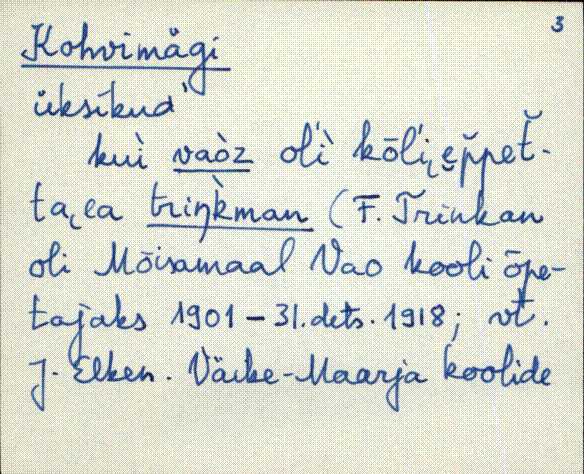 3
Kohvimägi
üksikud'
kuì vaòz ol̀'ì kōl'i̮ e̮p̆pet̆-
ta̮ea triŋ̀kman (F. Trinkan
oli Mõisamaal Vao kooli õpe-
tajaks 1901 – 31. dets. 1918; vt.
J. Elken. Väike-Maarja koolide